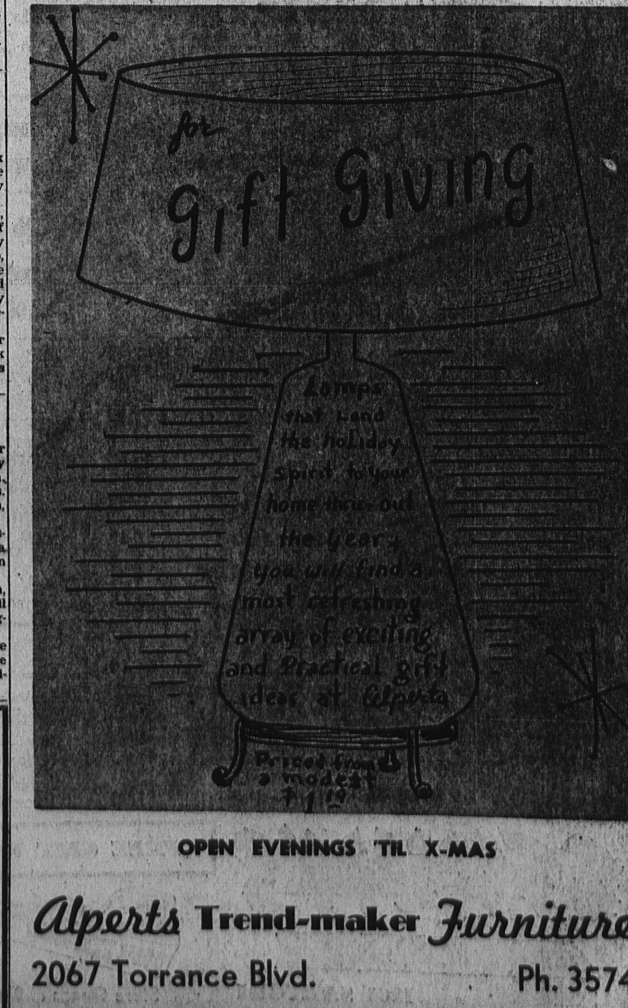 for
gift giving
Lamps
that Lend
the holiday
spirit to your
home thru-out
the year
you will find a
most refreshing
array of exciting
and Practical gift
ideas at Alperts
Priced from
a modest
OPEN EVENINGS 'TIL X-MAS
Alperts Trend-maker Furniture
2067 Torrance Blvd.
Ph. 3574